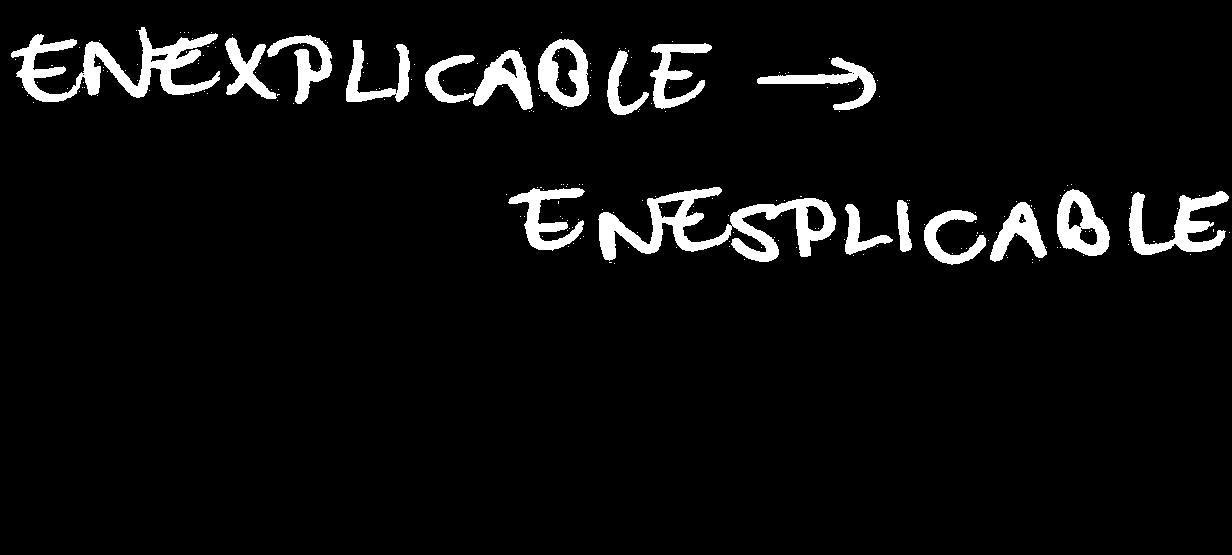 ENEXPLICABLE →
ENESPLICABLE